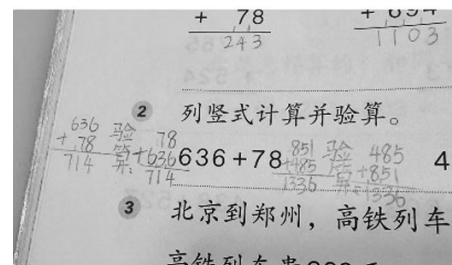 + 78
243
+ 694
1103
2 列竖式计算并验算。
636
+ 78
714
验算:
78
+636
714
636+78
851
+485
1336
验算:
485
+851
1336
4
3 北京到郑州，高铁列车